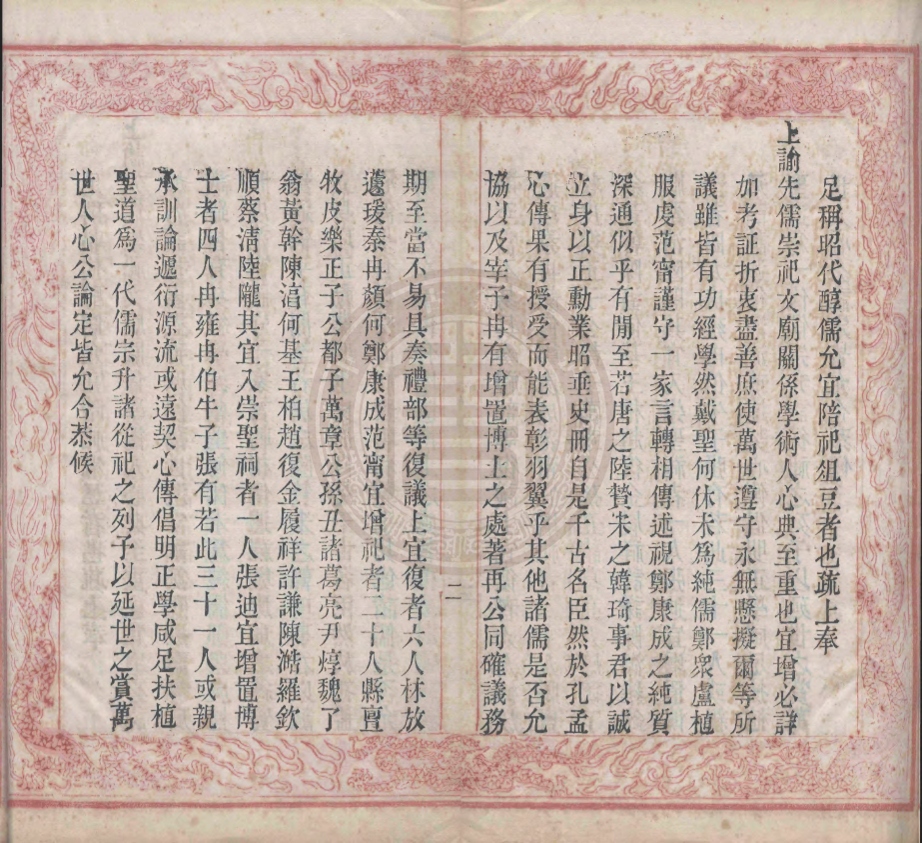 足稱昭代醇儒允宜陪祀俎豆者也疏上奉
上諭先儒崇祀文廟關係學術人心典至重也宜增必詳
加考証折衷盡善庶使萬世遵守永無懸擬爾等所
議雖皆有功經學然戴聖何休未爲純儒鄭衆盧植
服虔范甯謹守一家言轉相傳述視鄭康成之純質
深通似乎有閒至若唐之陸贄宋之韓琦事君以誠
立身以正勳業昭垂史冊自是千古名臣然於孔孟
心傳果有授受而能表彰羽翼乎其他諸儒是否允
協以及宰子冉有增置博士之處著再公同確議務
二
期至當不易具奏禮部等復議上宜復者六人林放
蘧瑗秦冉顏何鄭康成范甯宜增祀者二十人縣亶
牧皮樂正子公都子萬章公孫丑諸葛亮尹焞魏了
翁黃幹陳淳何基王柏趙復金履祥許謙陳澔羅欽
順蔡淸陸隴其宜入崇聖祠者一人張迪宜增置博
士者四人冉雍冉伯牛子張有若此三十一人或親
承訓論遞衍源流或遠契心傳倡明正學咸足扶植
聖道爲一代儒宗升諸從祀之列予以延世之賞萬
世人心公論定皆允合恭候